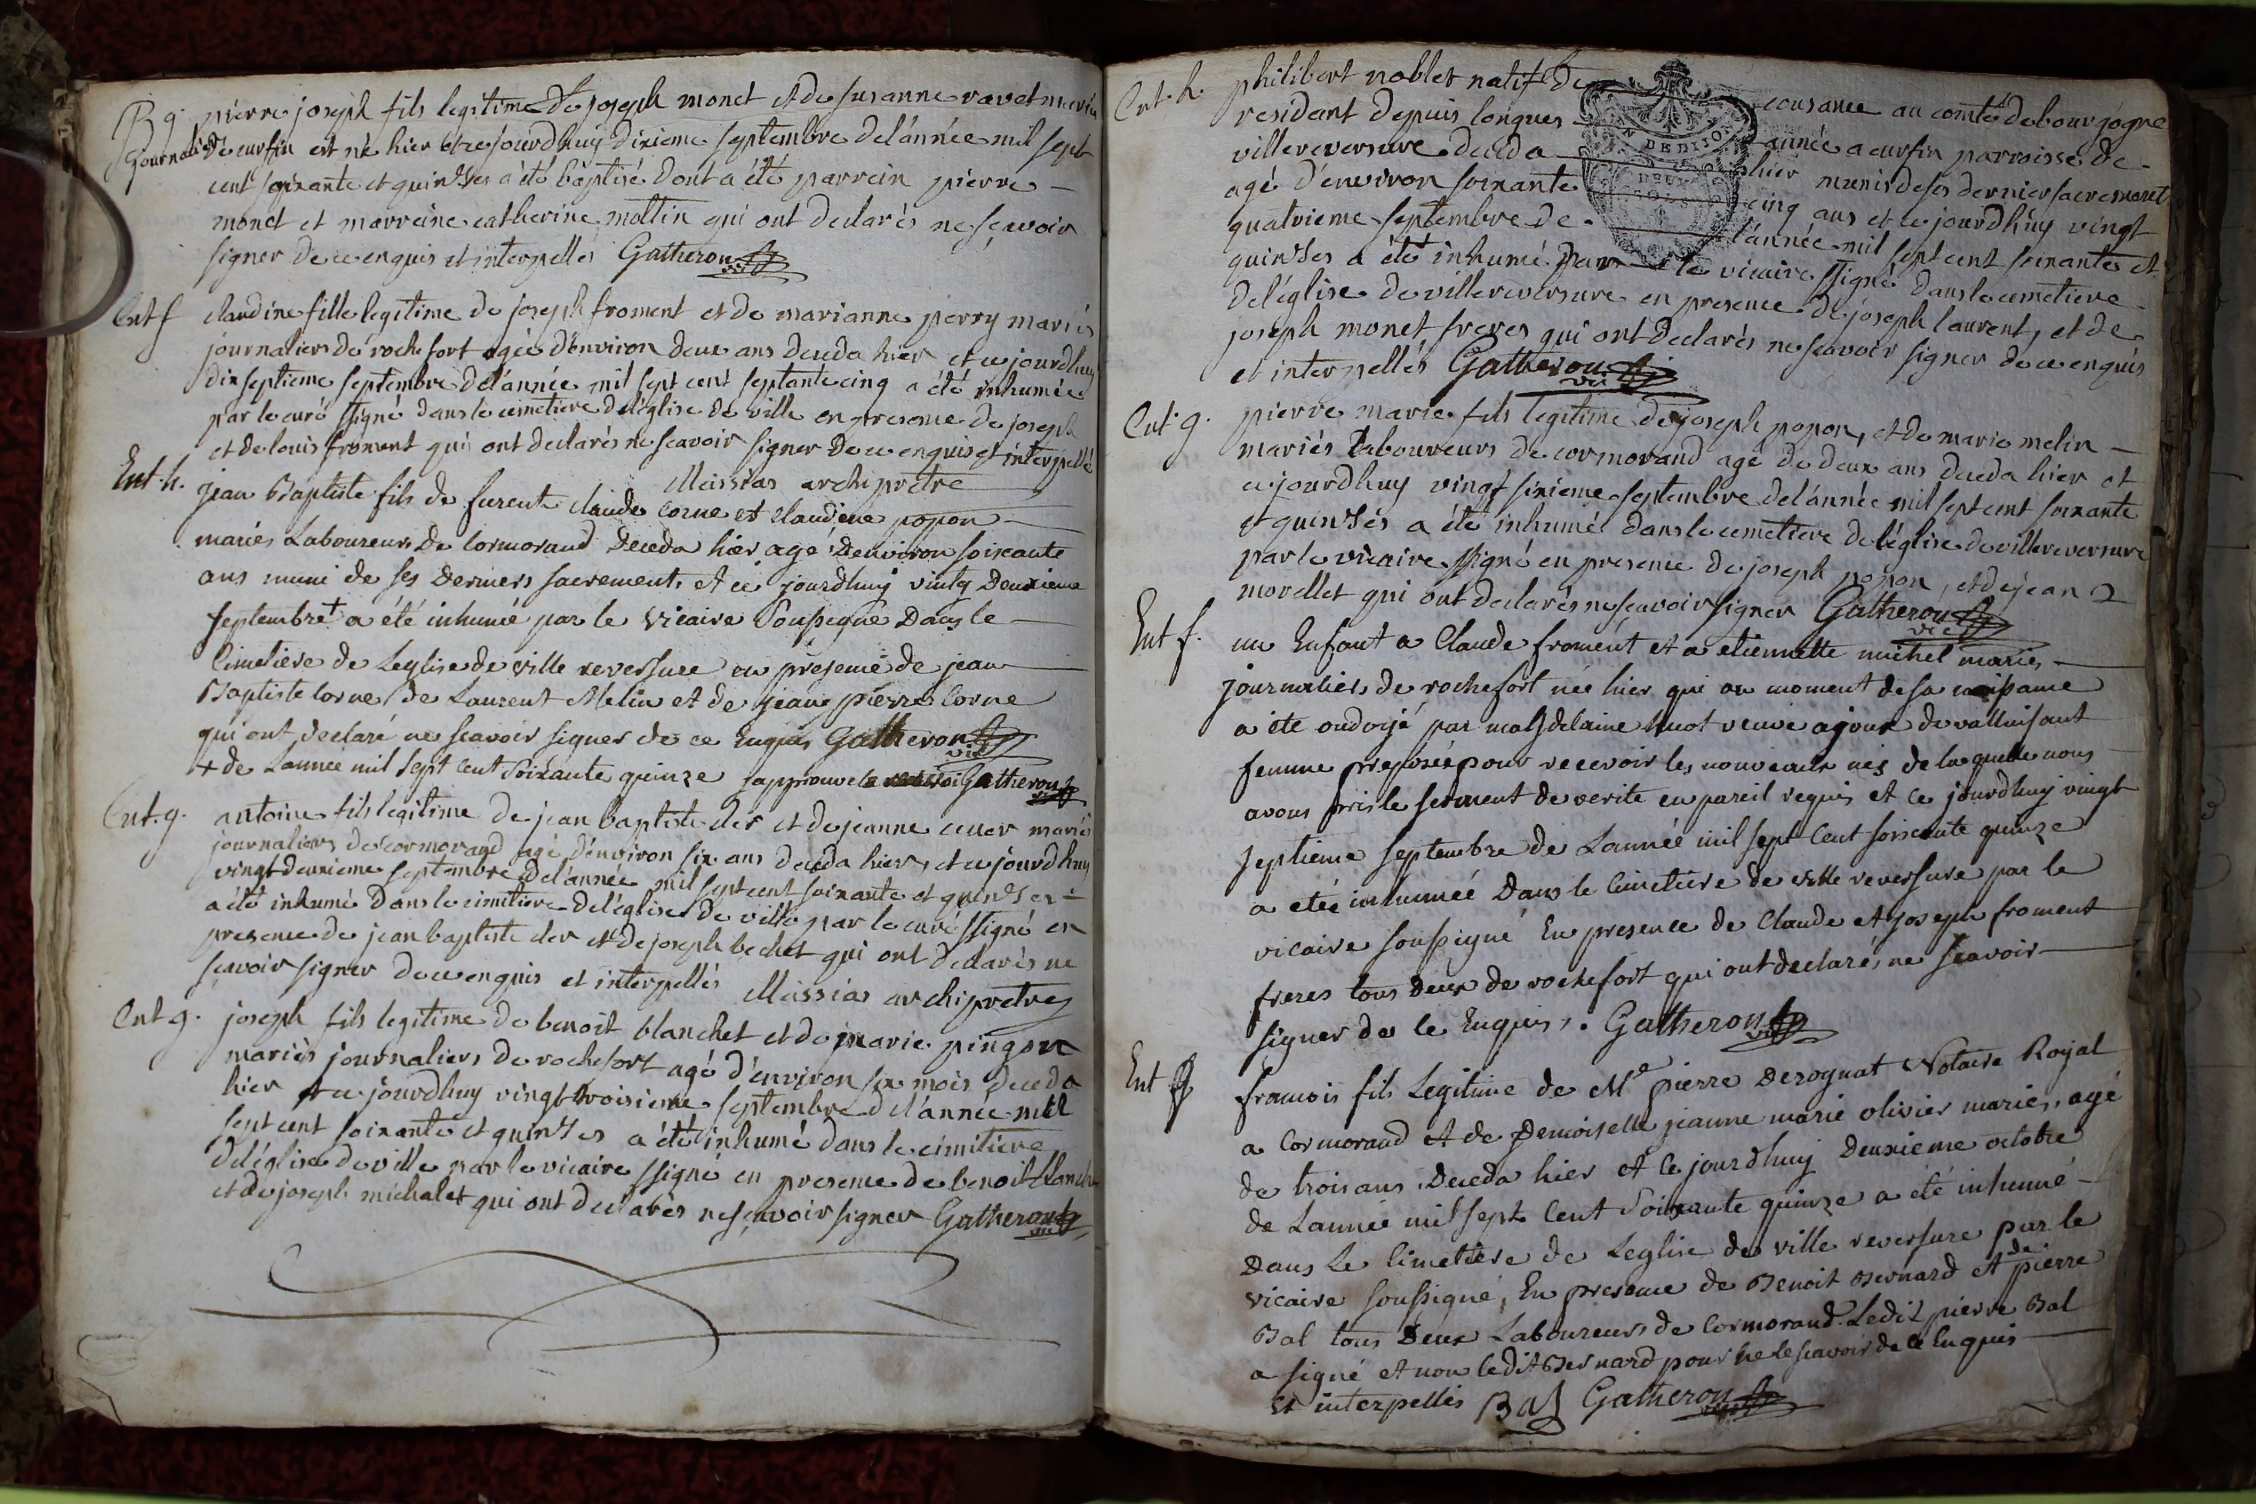 B g. pierre joseph fils legitime de joseph monet et de susanne ravet mariés
journaliers de curfin est né hier et ce jourdhuy dixieme septembre de l'année mil sept
cent soixante et quinses a été baptisé dont a été parrein pierre
monet et marreine catherine moltin qui ont declarés ne scavoir
signer de ce enquis et interpellés Gatheron vic
Ent f claudine fille legitime de joseph froment et de marianne perry mariés
journaliers de rochefort agée d'environ deux ans deceda hier et ce jourdhuy
dixseptieme septembre de l'année mil sept cent septante cinq a été inhumée
par le curé ssigné dans le cemetiere de l'église de ville en presence de joseph
et de louis froment qui ont declarés ne scavoir signer de ce enquis et interpellé
Messias archiprétre
Ent. h. jean Baptiste fils de furent claude corne et claudine popon
mariés Laboureurs de Cormorand Deceda hier agé Denviron soixante
ans muni de ses Derniers sacrements et ce jourdhuy vintg Deuxieme
septembre + a été inhumé par le vicaire Soussigné Dans le
Cimetiere de Leglise de ville reversure en presence de jean
Baptiste Corne, de Laurent Melin et de jean pierre Corne
qui ont declaré ne scavoir signer de ce Enquis Gatheron vic
+ de Lannée mil sept Cent Soixante quinze japprouve le renvoi Gatheron vic
Ent. g. antoine fils legitime de jean baptiste cler et de jeanne mariés
journaliers de cormorand agé d'environ six ans deceda hier, et ce jourdhuy
vingtdeuxieme septembre de l'année mil sept cent soixante et quinses
a été inhumé dans le cimitiere de l'église de ville par le curé ssigné en
presence de jean baptiste cler et de joseph bechet qui ont declarés ne
scavoir signer de ce enquis et interpellés Messias archiprétre
Ent g. joseph fils legitime de benoit blanchet et de marie pingon
mariés journaliers de rochefort agé d'environ six mois deceda
hier et ce jourdhuy vingt troisieme septembre de l'année mil
sept cent soixante et quinses a été inhumé dans le cimitiere
de l'église de ville par le vicaire ssigné en presence de benoit blanche
et de joseph michalet qui ont declarés ne scavoir signer Gatheron vic
Ent. h. philibert noblet natif de cousance au comté de bourgogne
residant depuis longues année a curfin parroisse de
villereversure deceda hier munis de ses dernier sacrement
agé d'environ soixante cinq ans et ce jourdhuy vingt
quatrieme septembre de l'année mil sept cent soixante et
quinses a été inhumé par le vicaire ssigné dans le cemetiere
de l'église de villereversure en presence de joseph laurent, et de
joseph monet freres qui ont declarés ne scavoir signer de ce enquis
et interpellés Gatheron vic
Ent. g. pierre marie fils legitime de joseph popon, et de marie melin
mariés laboureurs de cormorand agé de deux ans deceda hier et
ce jourdhuy vingt sixieme septembre de l'année mil sept cent soixante
et quinses a été inhumé dans le cemetiere de l'église de villereversure
par le vicaire ssigné en presence de joseph popon, et de jean
morellet qui ont declarés ne scavoir signer Gatheron vic
Ent f. un Enfant a Claude froment et a etiennette michel mariés
journaliers de rochefort née hier qui au moment de sa naissance
a été ondoyé par magdelaine huot veuve ajoux de valluisant
femme preposée pour recevoir les nouveaux nés de laquelle nous
avons pris le serment de verité en pareil requis et ce jourdhuy vingt
septieme septembre de Lannée mil sept Cent soixante quinze
a etée inhumée Dans le Cimetiere de ville reversure par le
vicaire soussigné En presence de Claude et joseph froment
freres tous deux de rochefort qui ont declarés ne scavoir
signer de ce Enquis. Gatheron vic
Ent g francois fils Legitime de Me pierre Derognat Notaire Royal
a Cormorand et de Demoiselle jeanne marie olivier mariés, agé
de trois ans Deceda hier et Ce jourdhuy Deuxieme octobre
de Lannée mil sept Cent Soixante quinze a été inhumé
Dans Le Cimetiere de Leglise de ville reversure par le
vicaire soussigné, En presence de Benoit Bernard et de pierre
Bal tous Deux Laboureurs de Cormorand. Ledit pierre Bal
a signé et non ledit Bernard pour ne le scavoir de ce Enquis
Et interpellés Bal Gatheron vic